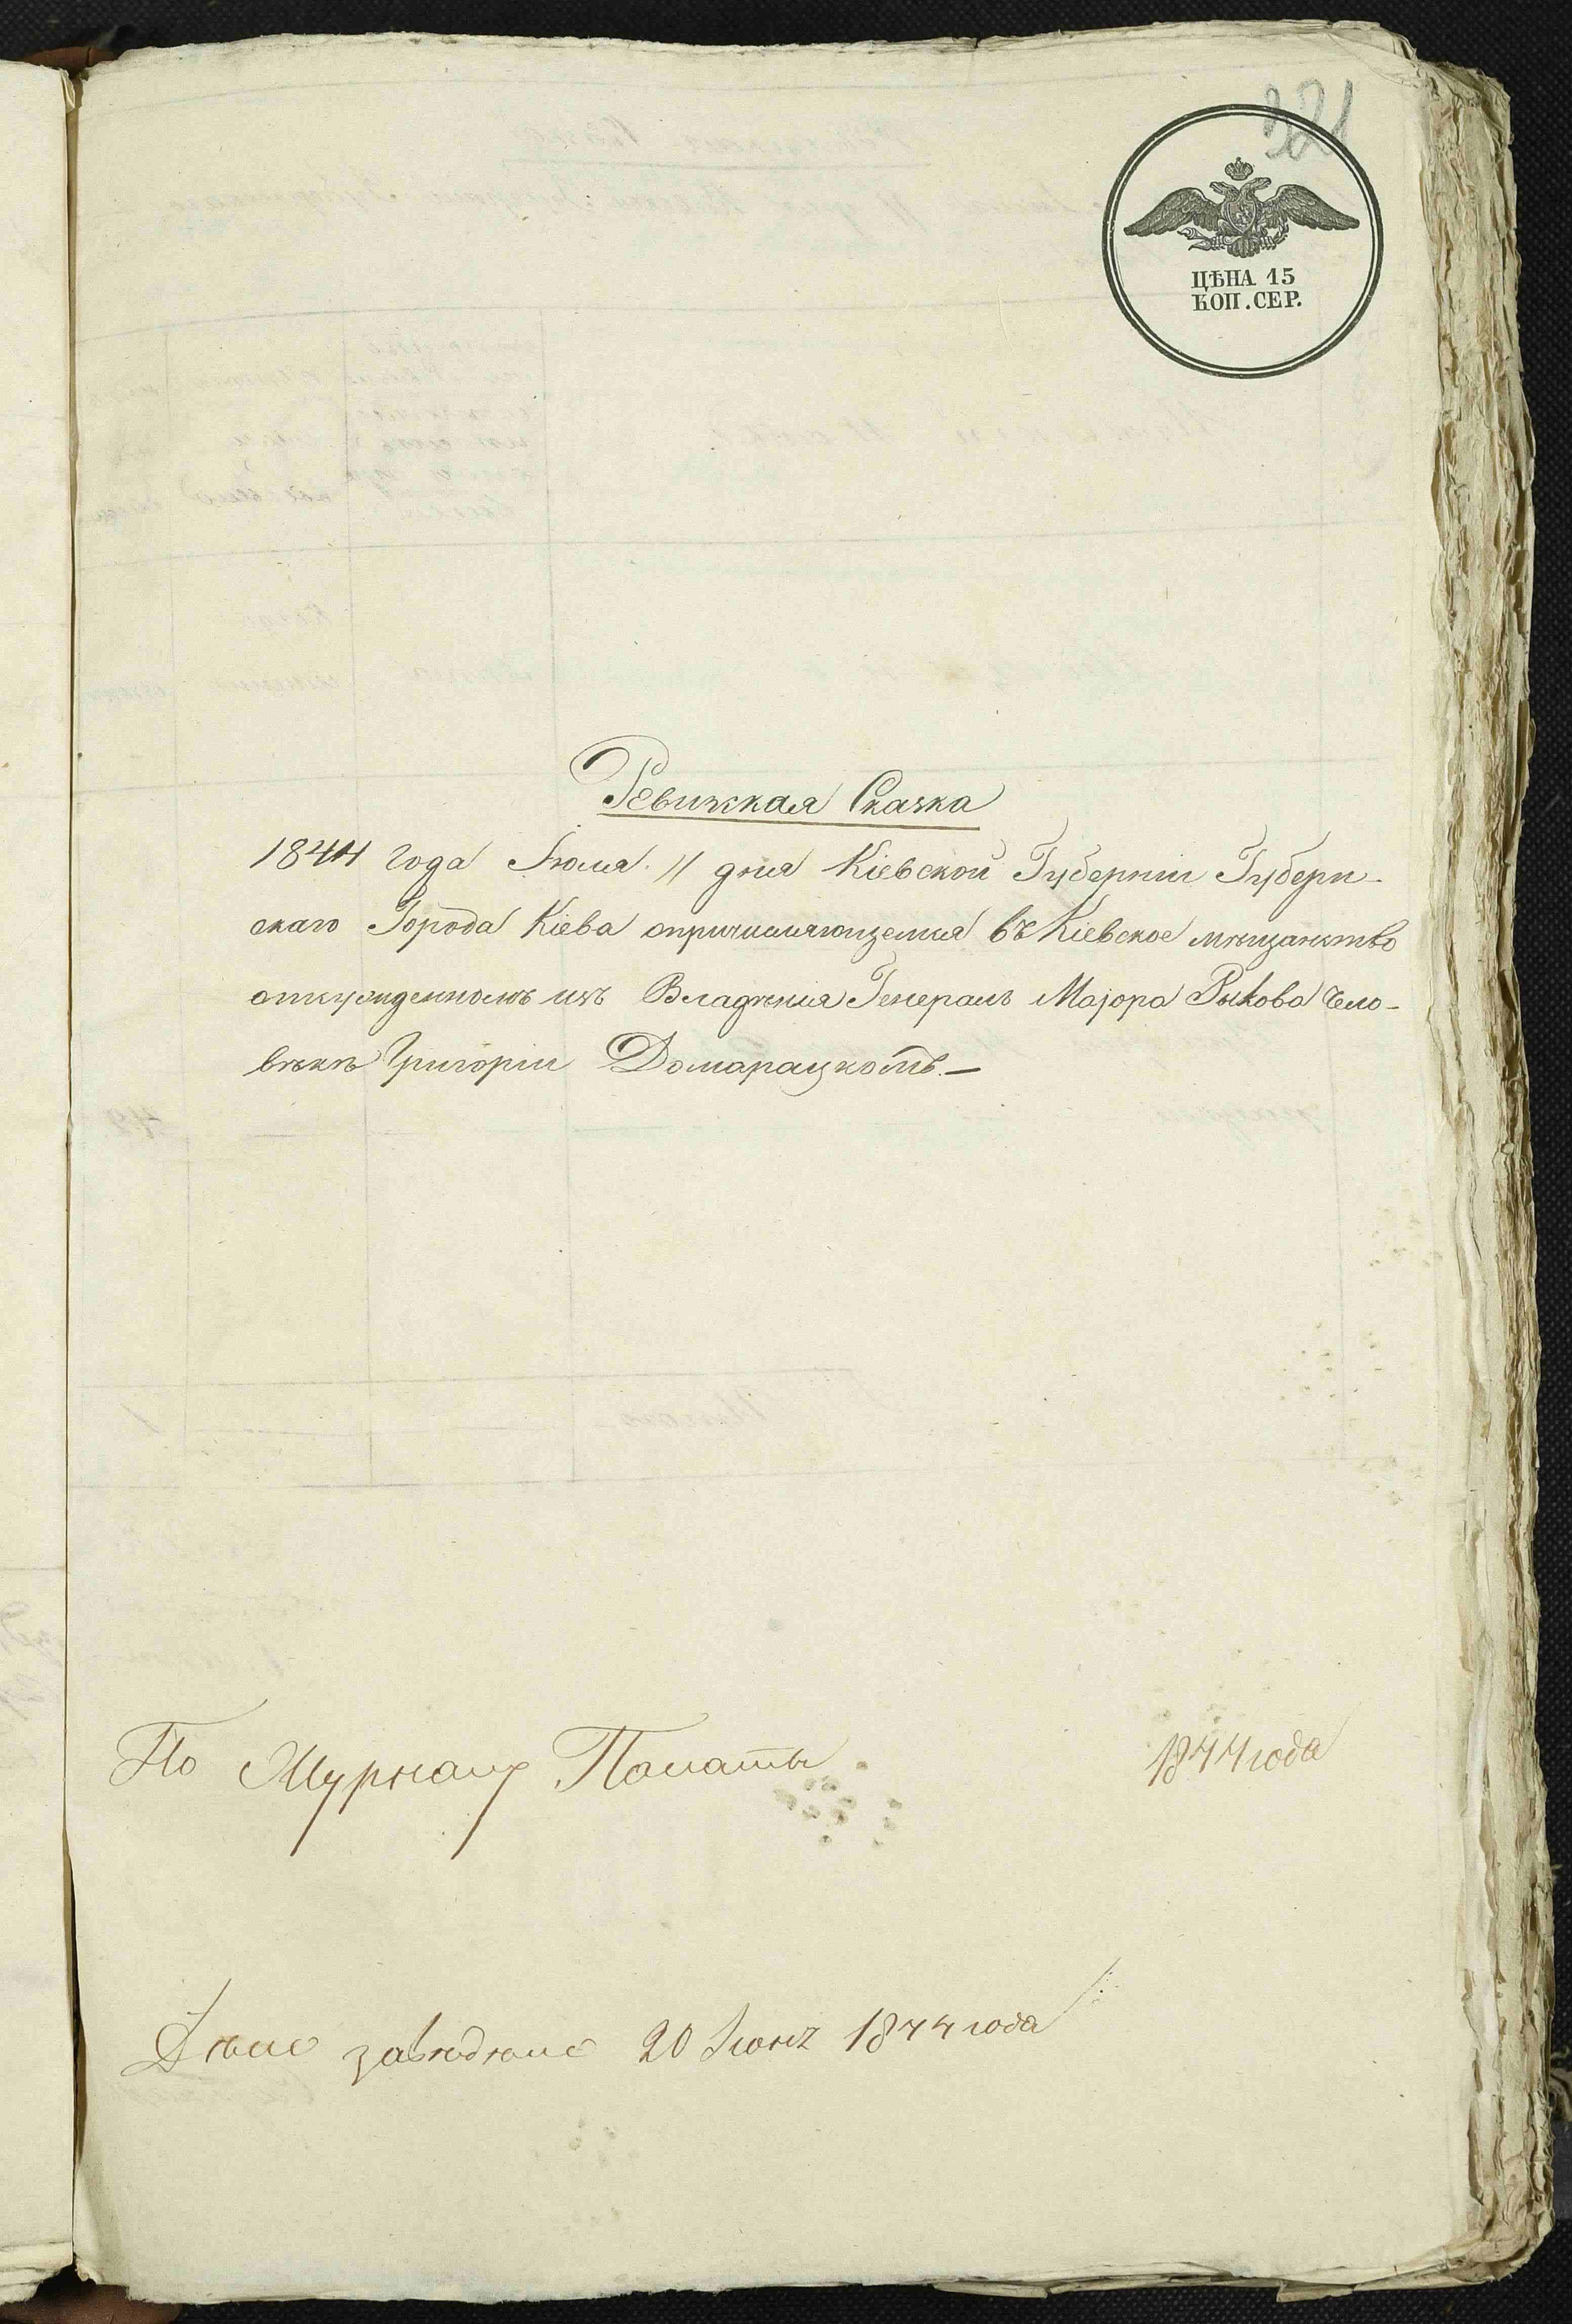 321
ЦѢНА 15
КОП. СЕР.
Ревижская Сказка
1844 года Іюля 11 дня Кіевской Губерніи Губерн-
скаго Города Кіева опричисляющемся въ Кіевское мѣщанство
отсужденномъ изъ Владѣнія Генералъ Маіора Рыкова Чело-
вѣкѣ Григоріи Домарацкомъ.—
По Журналу Палаты 1844 года
Дѣло 20 1844 года